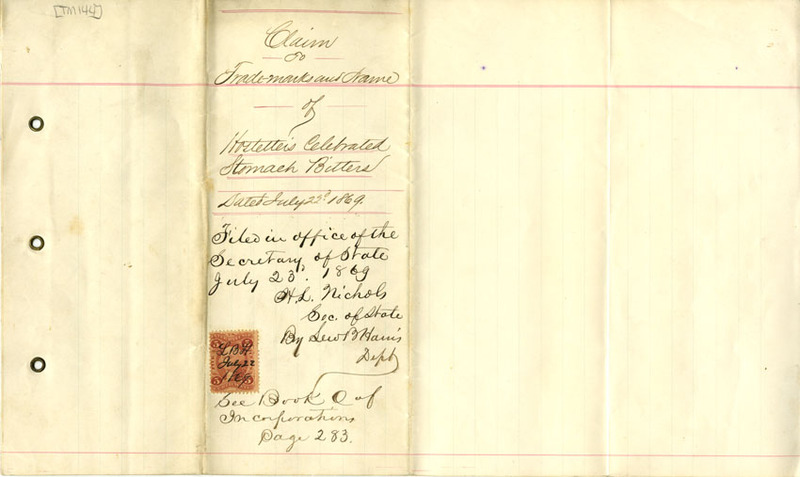 [TM144]
Claim
To
Trade-marks and Name
of
Hostetter's Celebrated
Stomach Bitters
Dated July 22d. 1869.
Filed in office of the
Secretary of State
July 23d. 1869
H.L. Nichols
Sec. of State
By Lew B Harris
Dept
L.B.H.
July 22
See Book C of
Incorporations
Page 283.